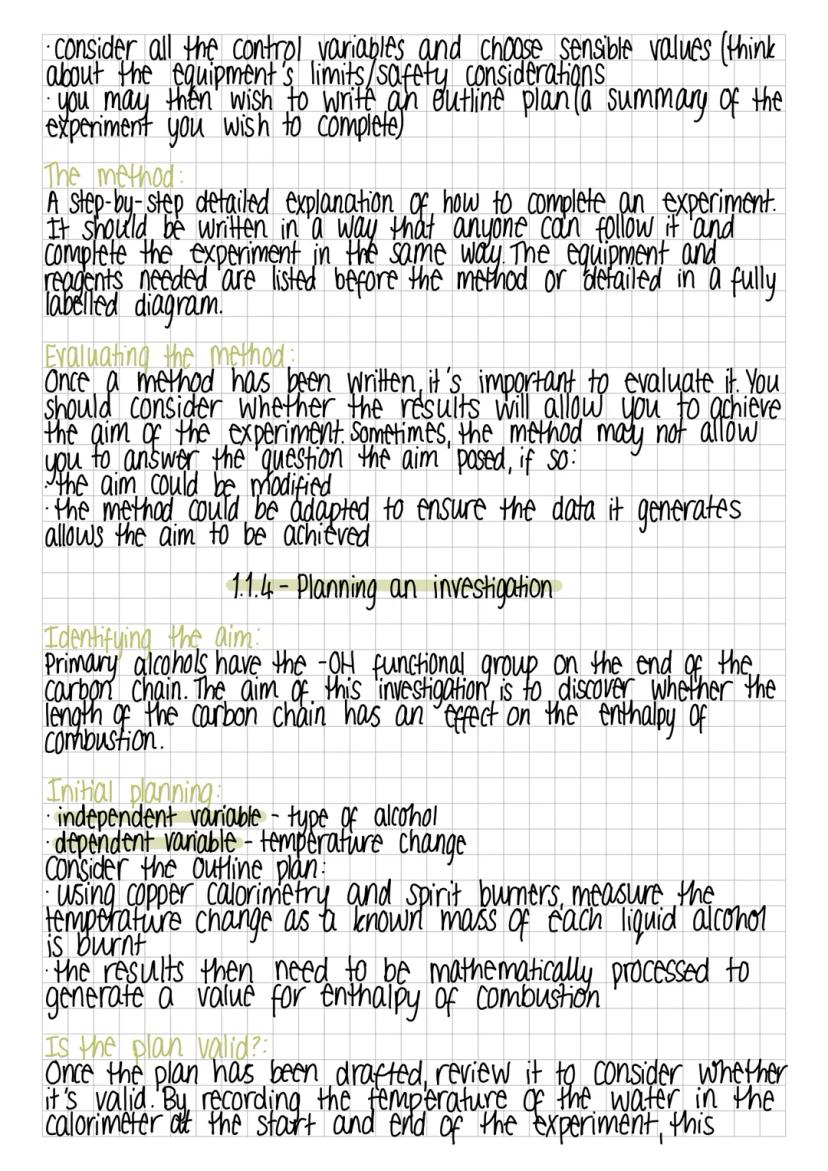 · consider all the control variables and choose sensible values (think
about the equipment's limits/safety considerations
· you may then wish to write an outline plan (a summary of the
experiment you wish to complete)
The method:
A step-by-step detailed explanation of how to complete an experiment.
It should be written in a way that anyone can follow it and
complete the experiment in the same way. The equipment and
reagents needed are listed before the method or detailed in a fully
labelled diagram.
Evaluating the method:
Once a method has been written, it's important to evaluate it. You
should consider whether the results will allow you to achieve
the aim of the experiment. Sometimes, the method may not allow
you to answer the question the aim posed, if so:
· the aim could be modified
· the method could be adapted to ensure the data it generates
allows the aim to be achieved
1.1.4 - Planning an investigation
Identifying the aim:
Primary alcohols have the -OH functional group on the end of the
carbon chain. The aim of this investigation is to discover whether the
length of the carbon chain has an effect on the enthalpy of
combustion.
Initial planning:
· independent variable - type of alcohol
· dependent variable - temperature change
Consider the outline plan:
· using copper calorimetry and spirit burners, measure the
temperature change as a known mass of each liquid alcohol
is burnt
· the results then need to be mathematically processed to
generate a value for enthalpy of combustion
Is the plan valid?:
Once the plan has been drafted, review it to consider whether
it's valid. By recording the temperature of the water in the
calorimeter at the start and end of the experiment, this